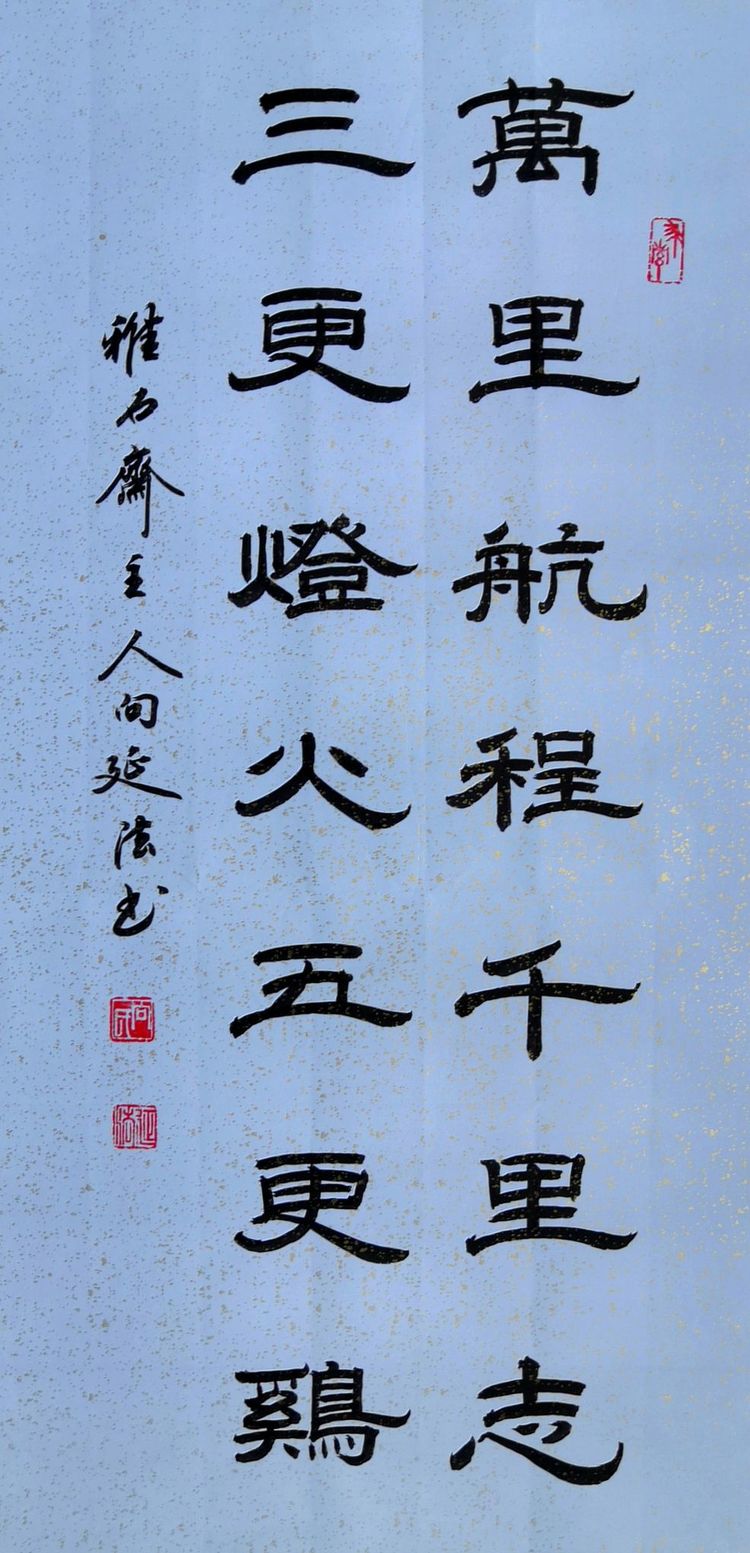 萬里航程千里志
三更燈火五更鷄
雅石齋主人向延法书
延法